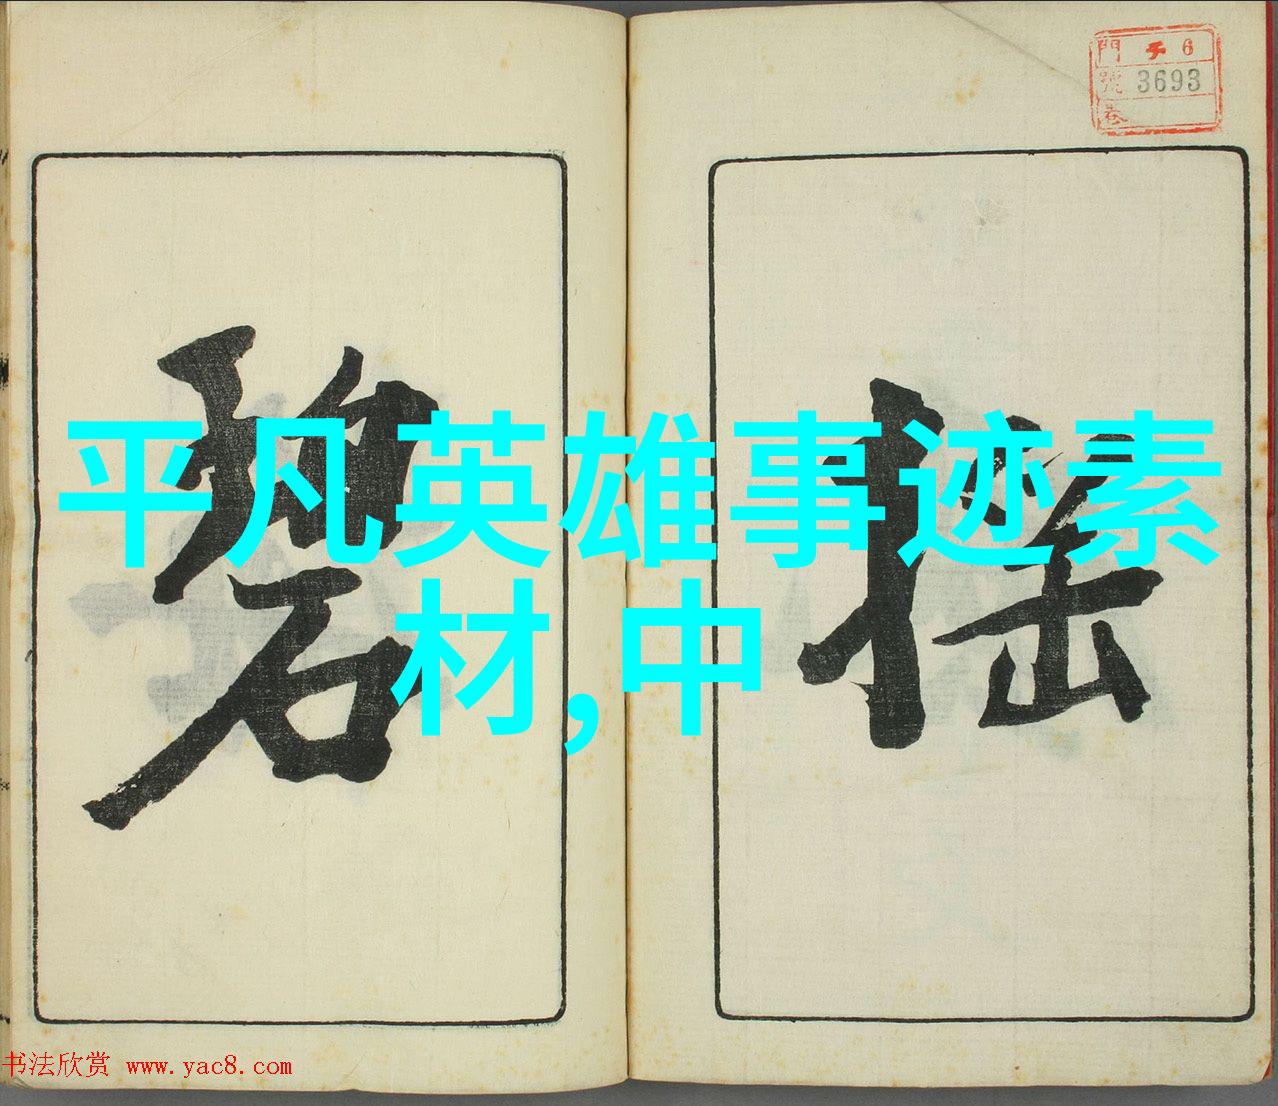 門 チ 6
號 3693
卷
搖
碧
平凡英雄事迹素
材,中
书法欣赏 www.yac8.com